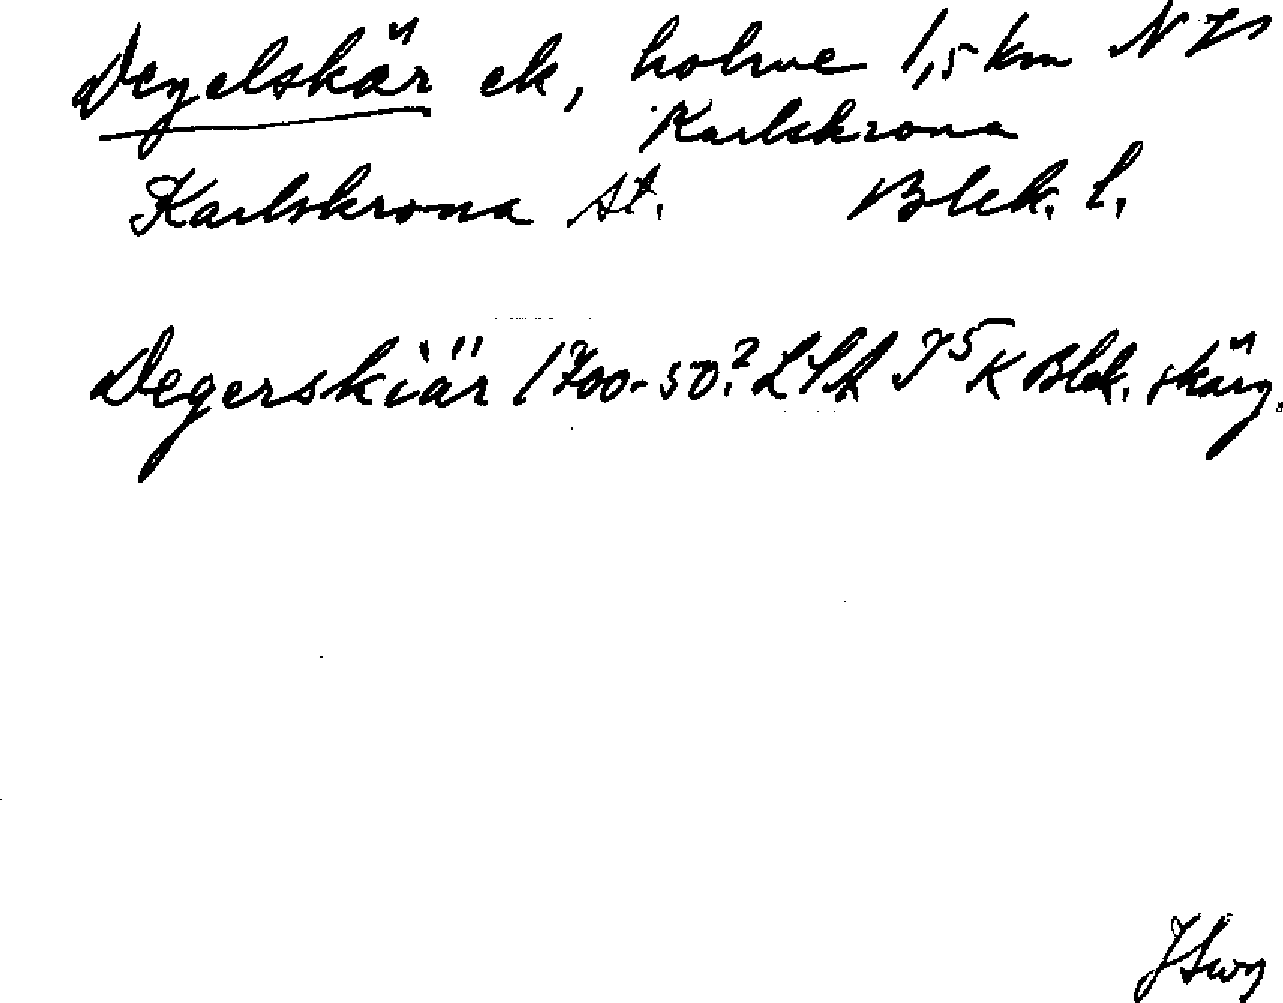 Degelskär ek, holme 1,5 km N
Karlskrona
Karlskrona st. Blek. l.
Degerskiär 1700-50? LSA K Blek. skärg.